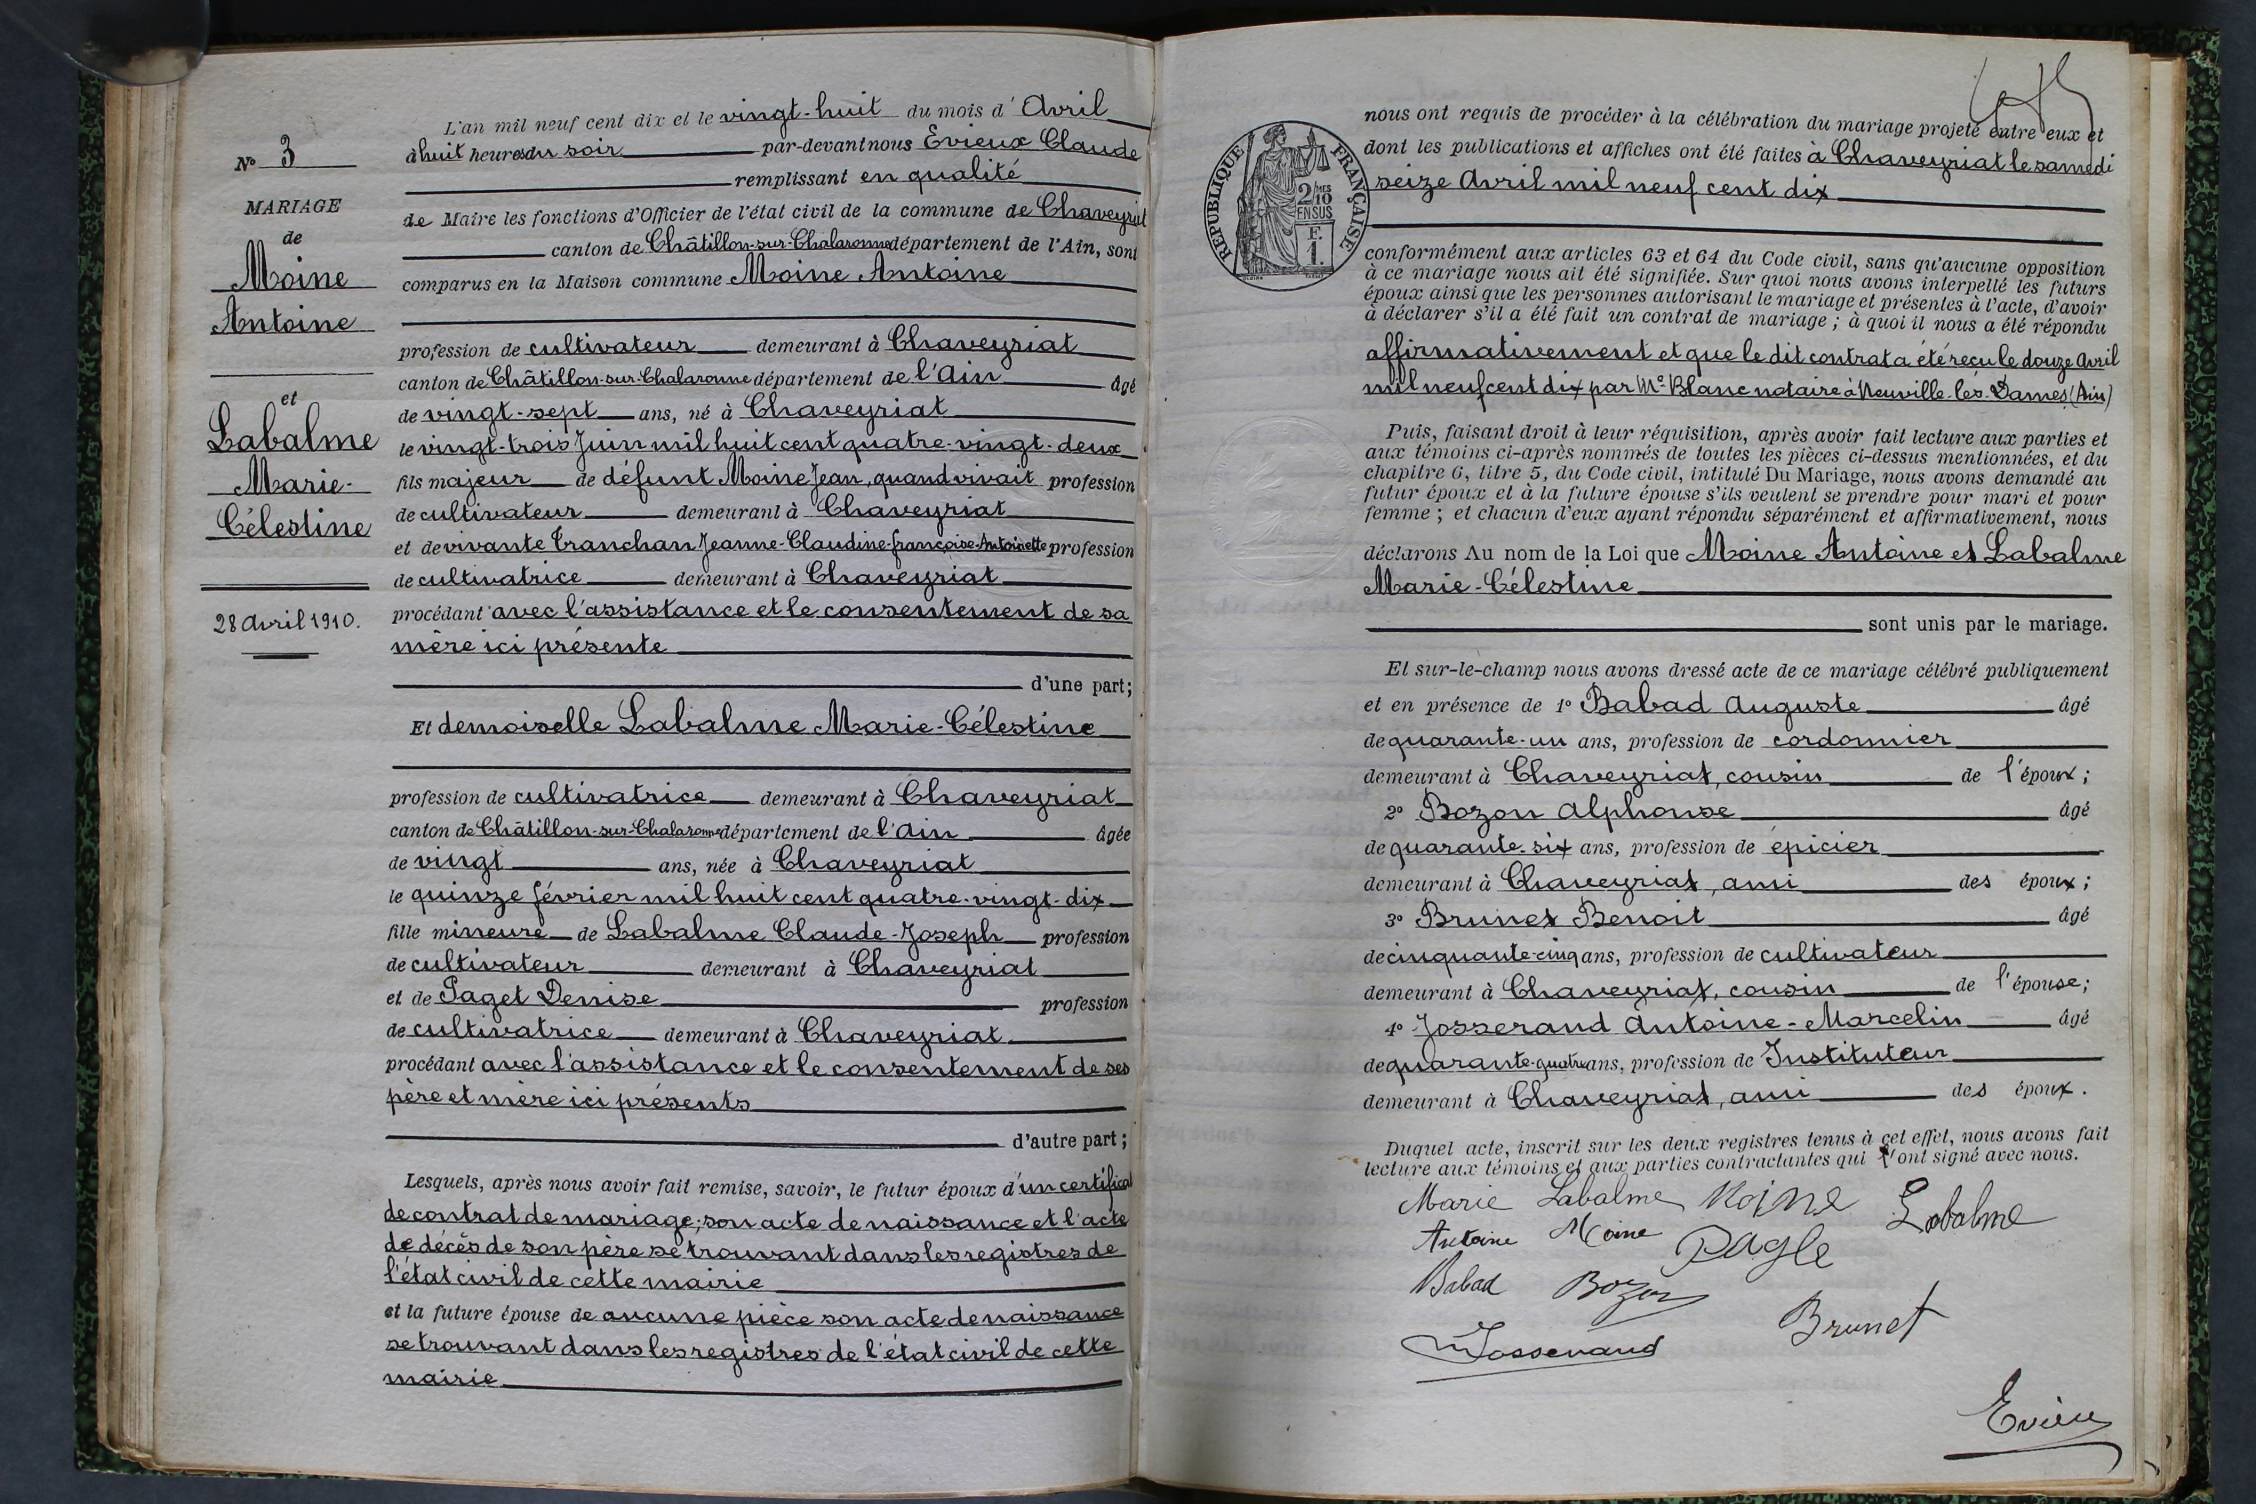 N° 3
MARIAGE
de
Moine
Antoine
et
Labalme
Marie-
Célestine
28 avril 1910.
L'an mil neuf cent dix et le vingt-huit du mois d'Avril
à huit heures du soir par-devant nous Evieux Claude
remplissant en qualité
de Maire les fonctions d'Officier de l'état civil de la commune de Chaveyriat
canton de Châtillon-sur-Chalaronne département de l'Ain, sont
comparus en la Maison commune Moine Antoine
profession de cultivateur demeurant à Chaveyriat
canton de Châtillon-sur-Chalaronne département de l'Ain âgé
de vingt-sept ans, né à Chaveyriat
le vingt-trois Juin mil huit cent quatre-vingt-deux
fils majeur de défunt Moine Jean, quand vivait profession
de cultivateur demeurant à Chaveyriat
et de vivante Tranchan Jeanne-Claudine-françoise-Antoinette profession
de cultivatrice demeurant à Chaveyriat
procédant avec l'assistance et le consentement de sa
mère ici présente
d'une part;
Et demoiselle Labalme Marie-Célestine
profession de cultivatrice demeurant à Chaveyriat
canton de Châtillon-sur-Chalaronne département de l'Ain âgée
de vingt ans, née à Chaveyriat
le quinze février mil huit cent quatre-vingt-dix
fille mineure de Labalme Claude-Joseph profession
de cultivateur demeurant à Chaveyriat
et de Paget Denise profession
de cultivatrice demeurant à Chaveyriat
procédant avec l'assistance et le consentement de ses
père et mère ici présents
d'autre part;
Lesquels, après nous avoir fait remise, savoir, le futur époux d'un certificat
de contrat de mariage; son acte de naissance et l'acte
de décès de son père se trouvant dans les registres de
l'état civil de cette mairie
et la future épouse de aucune pièce son acte de naissance
se trouvant dans les registres de l'état civil de cette
mairie
RÉPUBLIQUE FRANÇAISE
2/10 MES
EN SUS
F.
1.
nous ont requis de procéder à la célébration du mariage projeté entre eux et
dont les publications et affiches ont été faites à Chaveyriat le samedi
seize Avril mil neuf cent dix
conformément aux articles 63 et 64 du Code civil, sans qu'aucune opposition
à ce mariage nous ait été signifiée. Sur quoi nous avons interpellé les futurs
époux ainsi que les personnes autorisant le mariage et présentes à l'acte, d'avoir
à déclarer s'il a été fait un contrat de mariage; à quoi il nous a été répondu
affirmativement et que le dit contrat a été reçu le douze avril
mil neuf cent dix par Me Blanc notaire à Neuville-les-Dames (Ain)
Puis, faisant droit à leur réquisition, après avoir fait lecture aux parties et
aux témoins ci-après nommés de toutes les pièces ci-dessus mentionnées, et du
chapitre 6, titre 5, du Code civil, intitulé Du Mariage, nous avons demandé au
futur époux et à la future épouse s'ils veulent se prendre pour mari et pour
femme; et chacun d'eux ayant répondu séparément et affirmativement, nous
déclarons Au nom de la Loi que Moine Antoine et Labalme
Marie-Célestine
sont unis par le mariage.
Et sur-le-champ nous avons dressé acte de ce mariage célébré publiquement
et en présence de 1° Babad Auguste âgé
de quarante-un ans, profession de cordonnier
demeurant à Chaveyriat, cousin de l'époux;
2° Bozon Alphonse âgé
de quarante-six ans, profession de épicier
demeurant à Chaveyriat, ami des époux;
3° Brunet Benoit âgé
de cinquante-cinq ans, profession de cultivateur
demeurant à Chaveyriat, cousin de l'épouse;
4° Josserand Antoine-Marcelin âgé
de quarante-quatre ans, profession de Instituteur
demeurant à Chaveyriat, ami des époux.
Duquel acte, inscrit sur les deux registres tenus à cet effet, nous avons fait
lecture aux témoins et aux parties contractantes qui l'ont signé avec nous.
Marie Labalme Moine Labalme
Antoine Moine Pagle
Babad Bozon Brunet
Josserand
Evieux